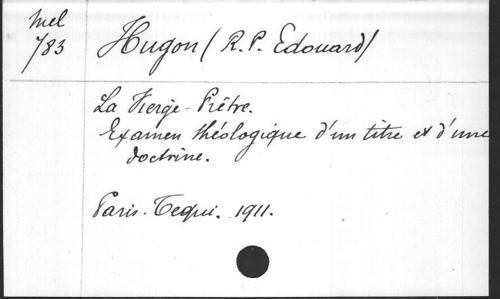 Mel
783
Hugon (R. P. Edouard)
La Vierge-Prêtre.
Examen théologique d'un titre et d'une
doctrine.
Paris. Tequi. 1911.